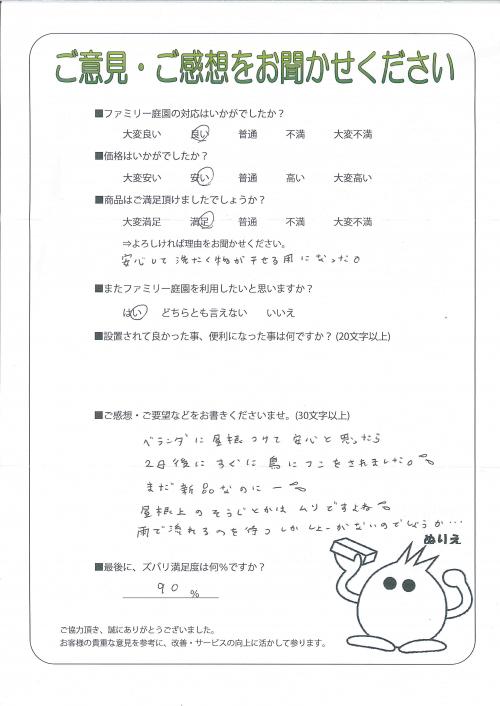 ご意見・ご感想をお聞かせください
■ファミリー庭園の対応はいかがでしたか？
大変良い 良い 普通 不満 大変不満
■価格はいかがでしたか？
大変安い 安い 普通 高い 大変高い
■商品はご満足頂けましたでしょうか？
大変満足 満足 普通 不満 大変不満
⇒よろしければ理由をお聞かせください。
安心して洗たく物が干せる用になった。
■またファミリー庭園を利用したいと思いますか？
はい どちらとも言えない いいえ
■設置されて良かった事、便利になった事は何ですか？(20文字以上)
■ご感想・ご要望などをお書きくださいませ。(30文字以上)
ベランダに屋根つけて安心と思ったら
2日後にすぐに鳥にフンをされました。
まだ新品なのにー
屋根上のそうじとかはムリですよね
雨で流れるのを待つしかしょーがないのでしょうか…
ぬりえ
■最後に、ズバリ満足度は何％ですか？
90 %
ご協力頂き、誠にありがとうございました。
お客様の貴重な意見を参考に、改善・サービスの向上に活かして参ります。